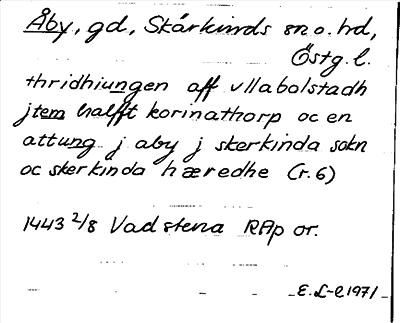 Åby, gd, Skärkinds sn o. hd,
Östg. l.
thridhiungen aff vllabolstadh
jtem halfft korinathorp oc en
attung j aby j skerkinda sokn
oc skerkinda hæredhe (r. 6)
1443 2/8 Vadstena RAp or.
E. L-e 1971